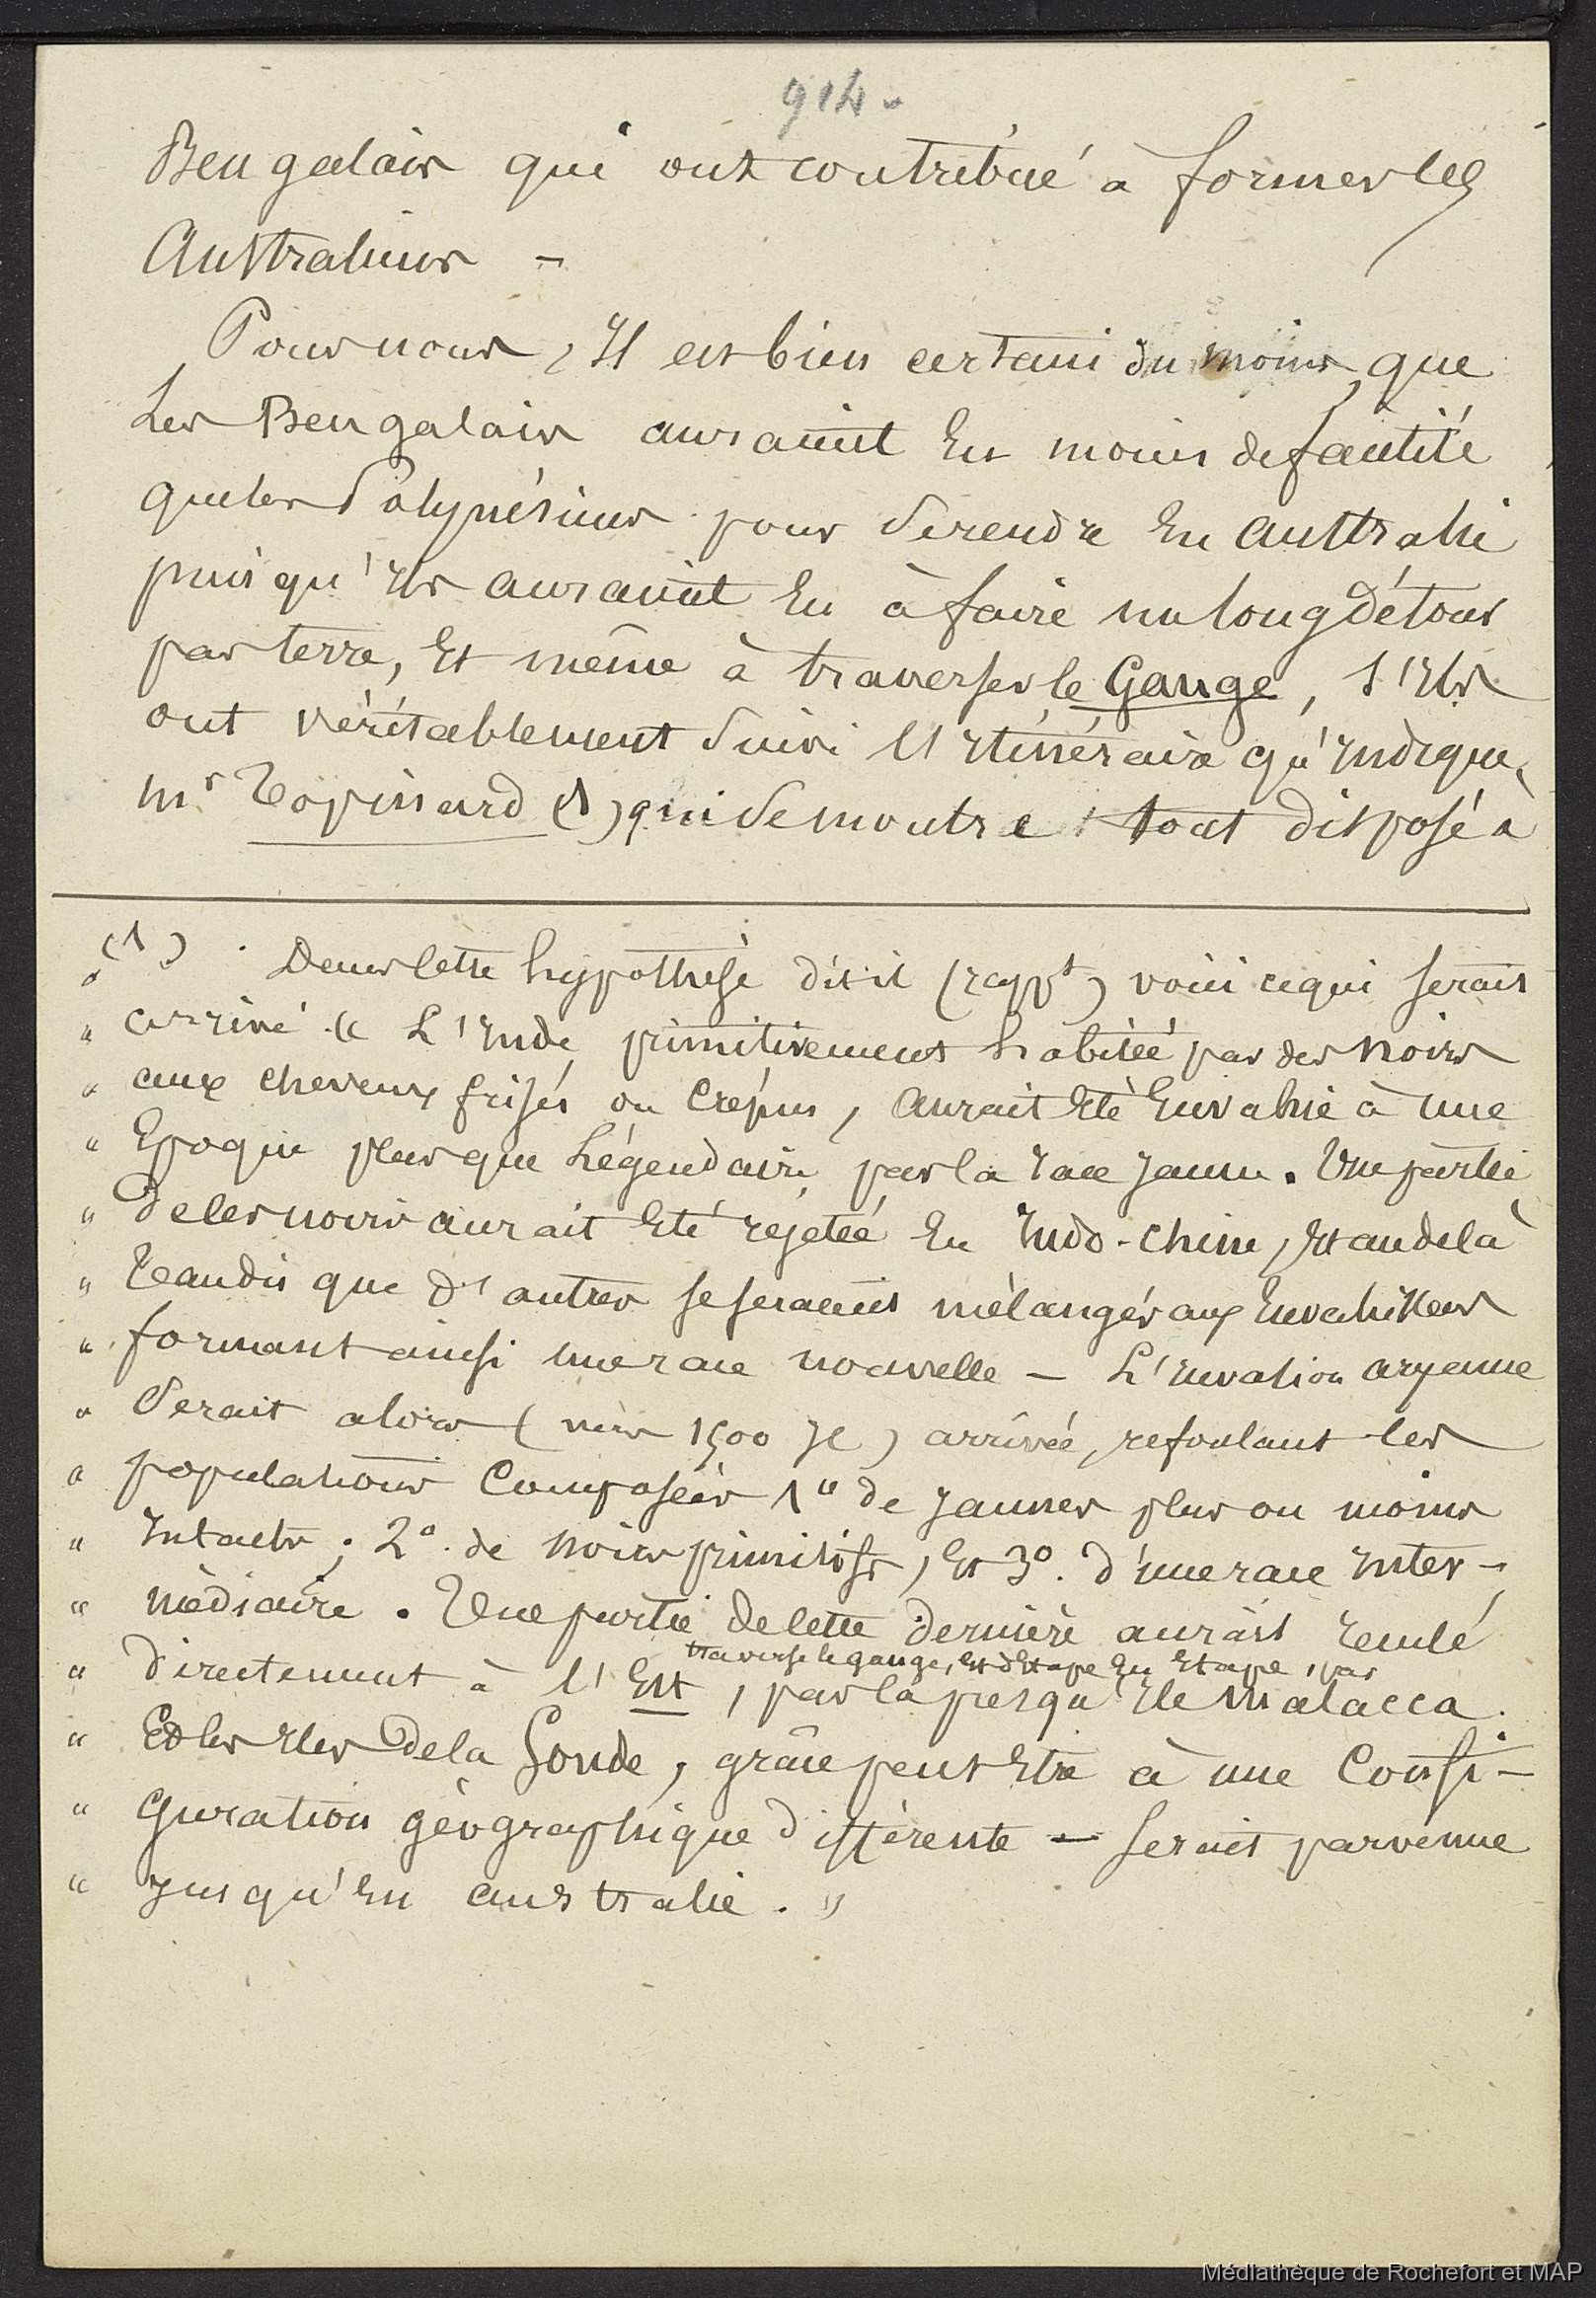 914.
Bengalais qui ont contribué à former les
Australiens –
Pour nous, Il est bien certain du moins, que
Les Bengalais auraient Eu moins de facilité
que les Polynésiens pour se rendre En Australie
puisqu'Ils auraient Eu à faire un long détour
par terre, Et même à traverser le Gange, s'Ils
ont véritablement suivi l'Itinéraire qu'Indique
Mr Topinard (1) qui se montre tout disposé à
(1) Dans cette hypothèse dit-il (rappt) voici ce qui serait
" arrivé « L'Inde primitivement habitée par des noirs
" aux cheveux frisés ou crépus, aurait Eté Envahie à une
" Epoque plus que Légendaire par la race jaune. Une partie
" de ces noirs aurait Eté rejetée En Indo-chine, Et au delà
" Tandis que d'autres se seraient mélangés aux Envahisseurs
" formant ainsi une race nouvelle – L'Invasion aryenne
" Serait alors (vers 1500 JC) arrivée, refoulant les
" populations Composées 1° de jaunes plus ou moins
" Intacts ; 2° de noirs primitifs, Et 3° d'une race Inter-
" médiaire. Une partie de cette dernière aurait reculé
traversé le gange, Et d'Etape En Etape, par
" directement à l'Est, par la presqu'Ile Malacca
" Et les Iles de la Sonde, grâce peut Etre à une Confi-
" guration géographique différente – serait parvenue
" jusqu'En australie. »
Médiathèque de Rochefort et MAP